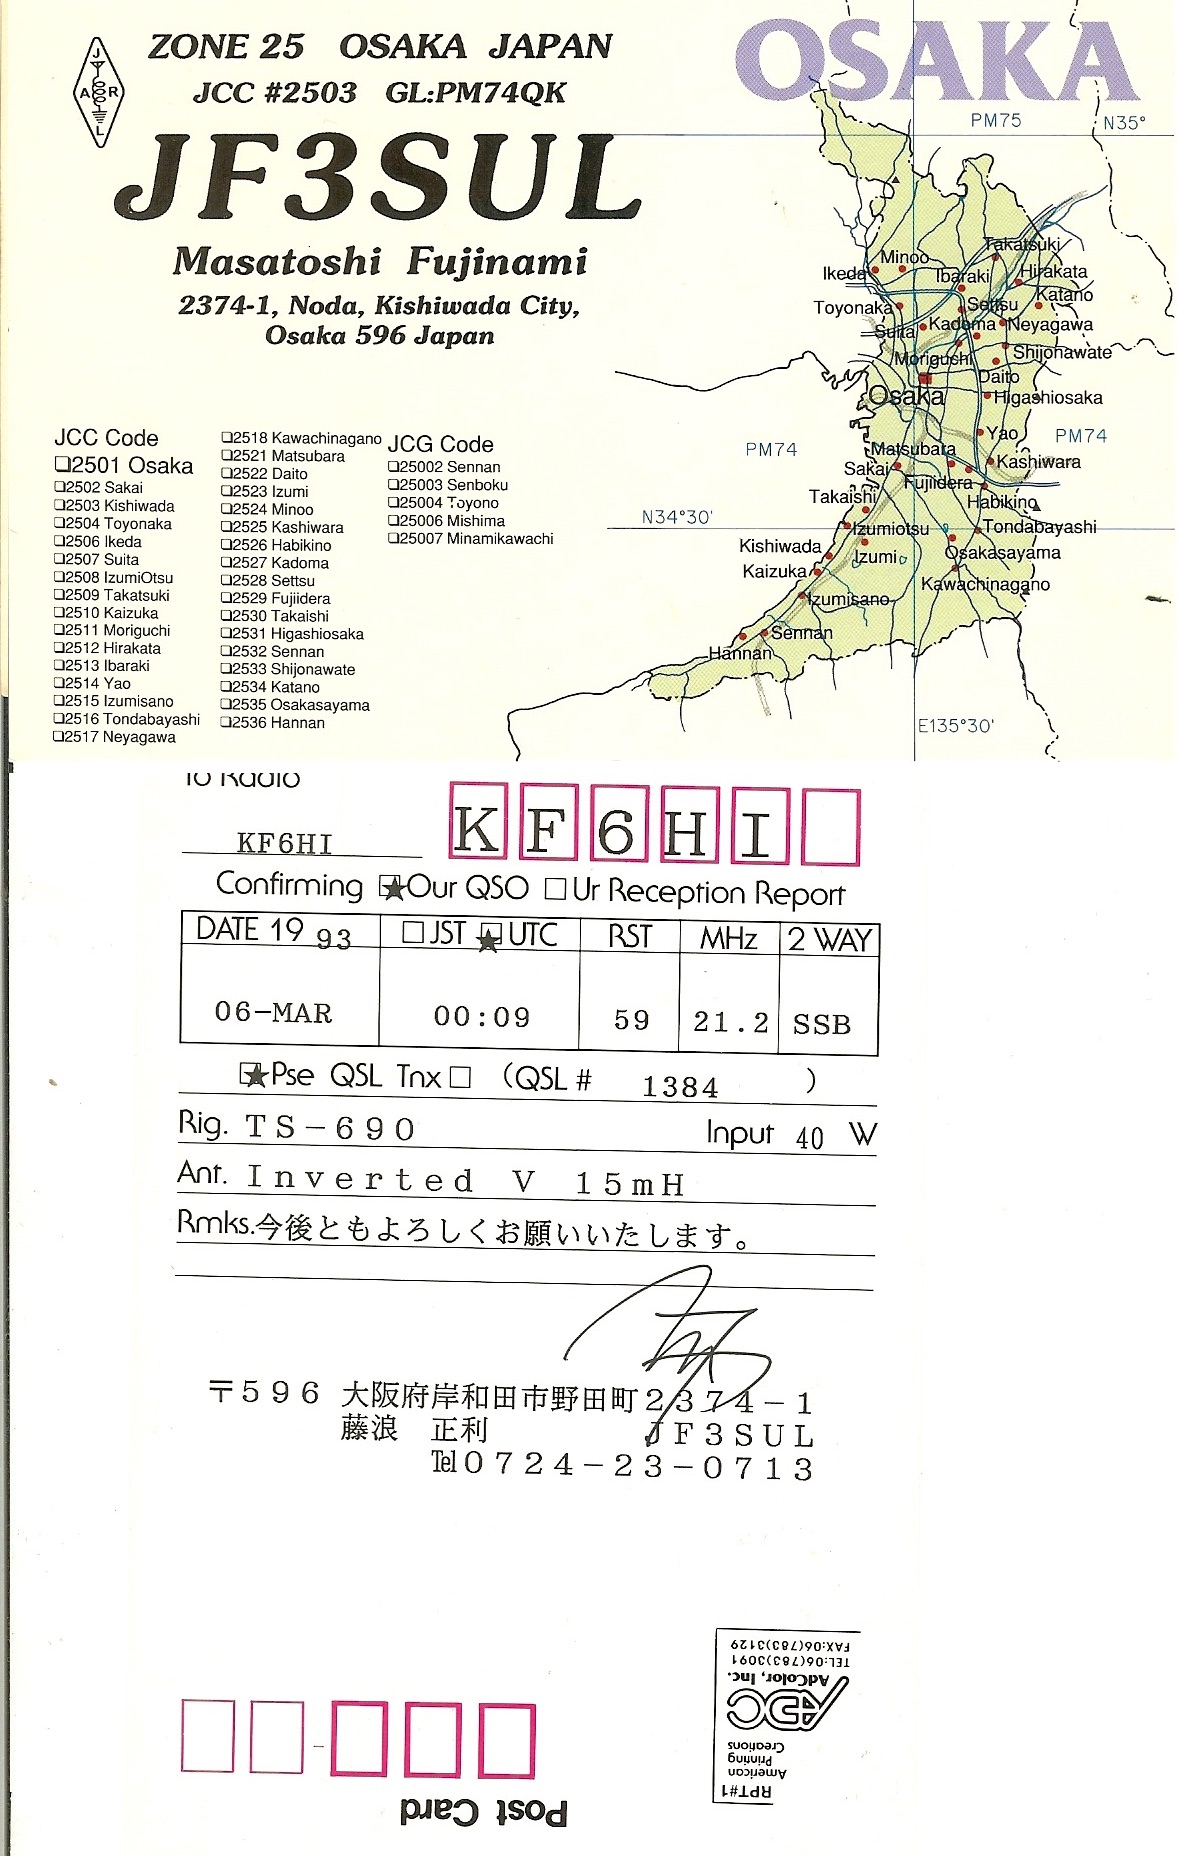 J
A R
L
ZONE 25 OSAKA JAPAN
JCC #2503 GL:PM74QK
JF3SUL
Masatoshi Fujinami
2374-1, Noda, Kishiwada City,
Osaka 596 Japan
JCC Code
❏2501 Osaka
❏2502 Sakai
❏2503 Kishiwada
❏2504 Toyonaka
❏2506 Ikeda
❏2507 Suita
❏2508 IzumiOtsu
❏2509 Takatsuki
❏2510 Kaizuka
❏2511 Moriguchi
❏2512 Hirakata
❏2513 Ibaraki
❏2514 Yao
❏2515 Izumisano
❏2516 Tondabayashi
❏2517 Neyagawa
❏2518 Kawachinagano
❏2521 Matsubara
❏2522 Daito
❏2523 Izumi
❏2524 Minoo
❏2525 Kashiwara
❏2526 Habikino
❏2527 Kadoma
❏2528 Settsu
❏2529 Fujiidera
❏2530 Takaishi
❏2531 Higashiosaka
❏2532 Sennan
❏2533 Shijonawate
❏2534 Katano
❏2535 Osakasayama
❏2536 Hannan
JCG Code
❏25002 Sennan
❏25003 Senboku
❏25004 Toyono
❏25006 Mishima
❏25007 Minamikawachi
OSAKA
PM75 N35°
Takatsuki
Minoo
Ikeda Ibaraki Hirakata
Settsu Katano
Toyonaka
Suita Kadoma Neyagawa
Moriguchi Shijonawate
Daito
Osaka Higashiosaka
Yao PM74
PM74 Matsubara
Sakai Kashiwara
Fujiidera
Takaishi Habikino
N34°30'
Izumiotsu Tondabayashi
Kishiwada Izumi Osakasayama
Kaizuka Kawachinagano
Izumisano
Sennan
Hannan
E135°30'
To Radio
KF6HI
KF6HI
Confirming ★Our QSO □Ur Reception Report
DATE 19 93 □JST ★UTC RST MHz 2 WAY
06-MAR 00:09 59 21.2 SSB
★Pse QSL Tnx□ (QSL # 1384 )
Rig. TS-690 Input 40 W
Ant. Inverted V 15mH
Rmks.今後ともよろしくお願いいたします。
〒596 大阪府岸和田市野田町2374-1
藤浪 正利 JF3SUL
℡0724-23-0713
FAX:06(783)3129
TEL:06(783)3091
AdColor, Inc.
ADC
American
Printing
Creations
RPT#1
Post Card